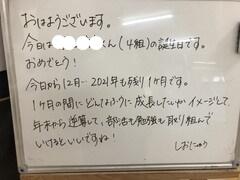 おはようございます。
今日は くん(4組)の誕生日です。
おめでとう!
今日から12月…2021年も残り1ヶ月です。
1ヶ月の間にどんなふうに成長したいかイメージして、
年末から逆算して、部活も勉強も取り組んで
いけるといいですね!